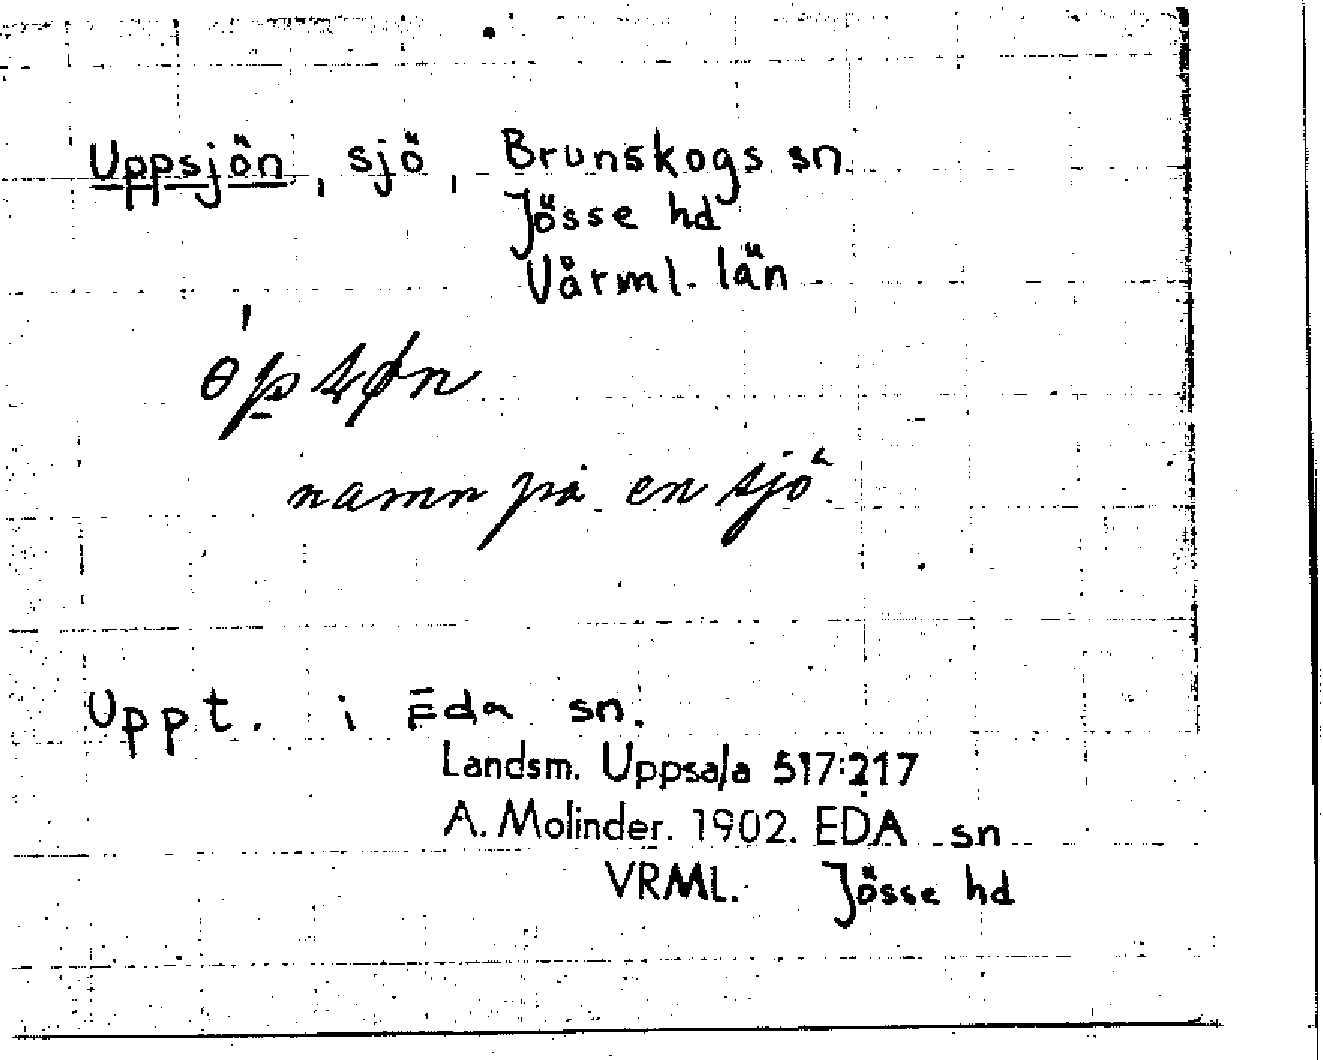 Uppsjön, sjö, Brunskogs sn
Jösse hd
Värml. län
namn på en sjö
Uppt. i Eda sn.
Landsm. Uppsala 517:217
A. Molinder. 1902. EDA sn
VRML. Jösse hd